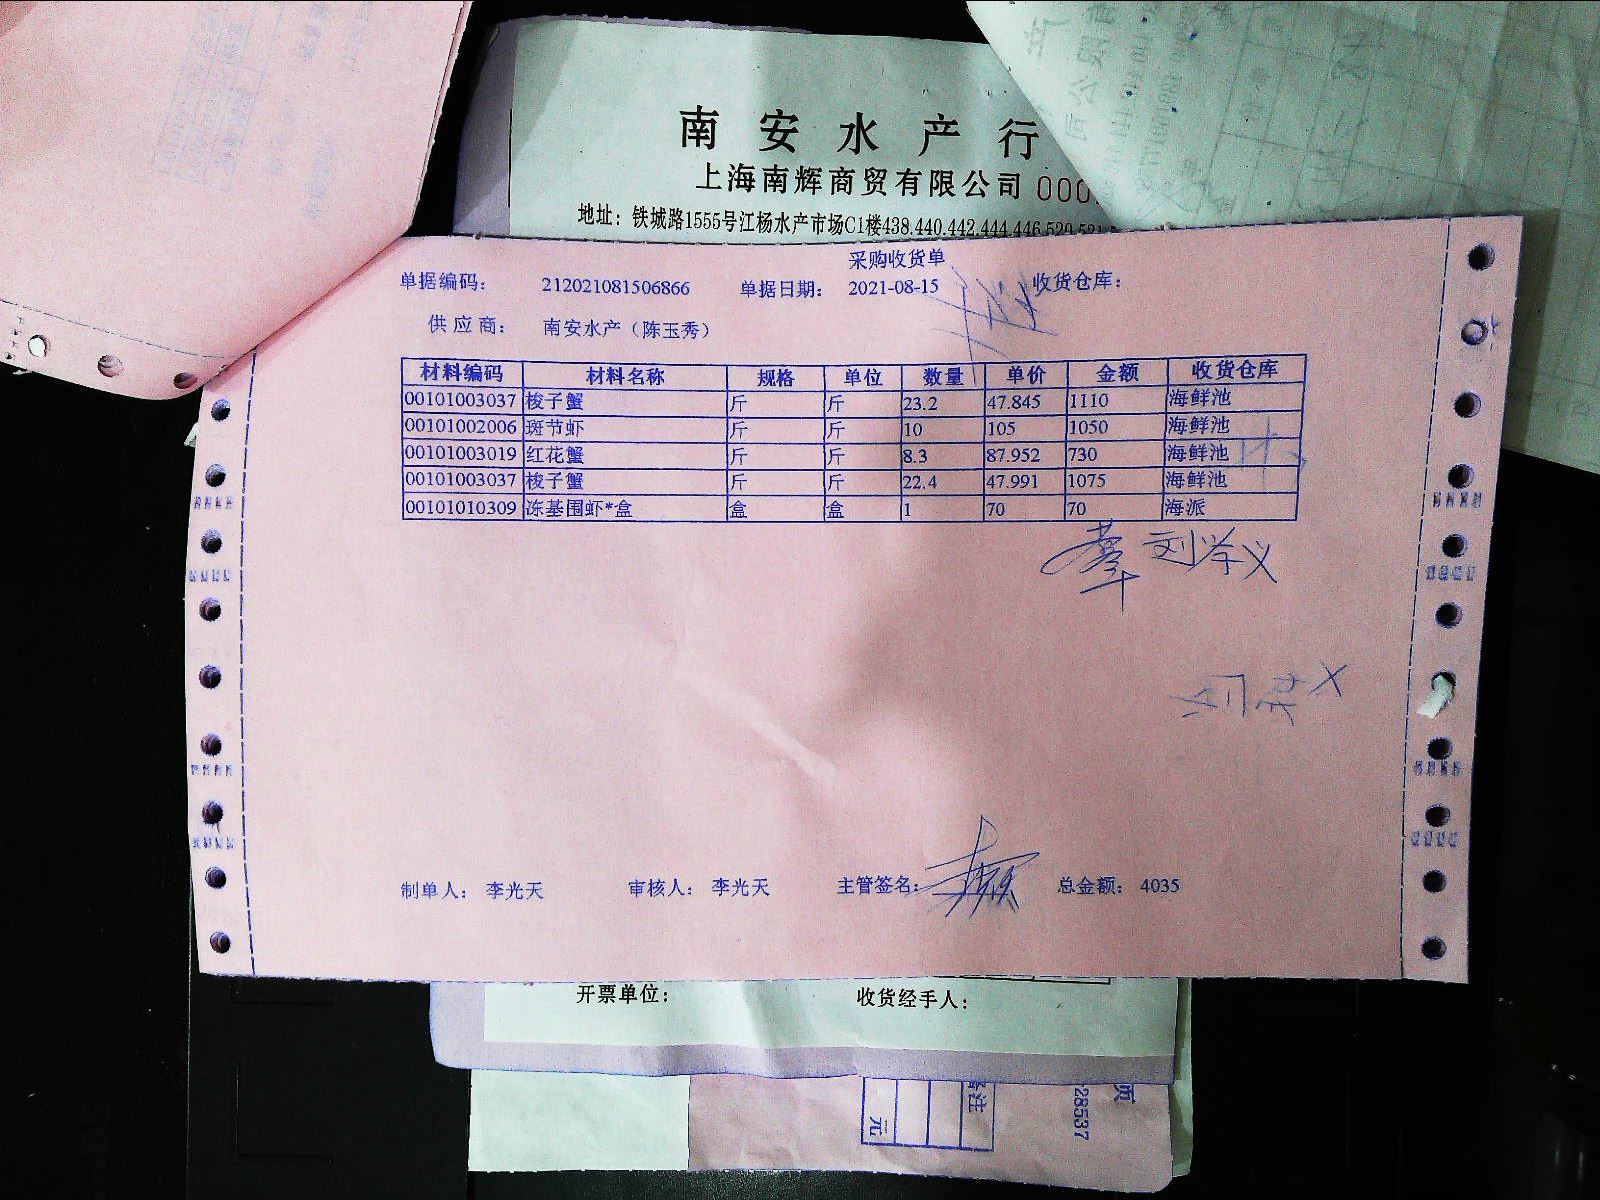 南安水产行
上海南辉商贸有限公司 000
地址：铁城路1555号江杨水产市场C1楼438.440.442.444.446.520.521
采购收货单
单据编码： 212021081506866 单据日期： 2021-08-15 收货仓库：
供应商： 南安水产（陈玉秀）
材料编码 材料名称 规格 单位 数量 单价 金额 收货仓库
00101003037 梭子蟹 斤 斤 23.2 47.845 1110 海鲜池
00101002006 斑节虾 斤 斤 10 105 1050 海鲜池
00101003019 红花蟹 斤 斤 8.3 87.952 730 海鲜池
00101003037 梭子蟹 斤 斤 22.4 47.991 1075 海鲜池
00101010309 冻基围虾*盒 盒 盒 1 70 70 海派
制单人： 李光天 审核人： 李光天 主管签名： 总金额： 4035
开票单位： 收货经手人：
备注
元
页
28537